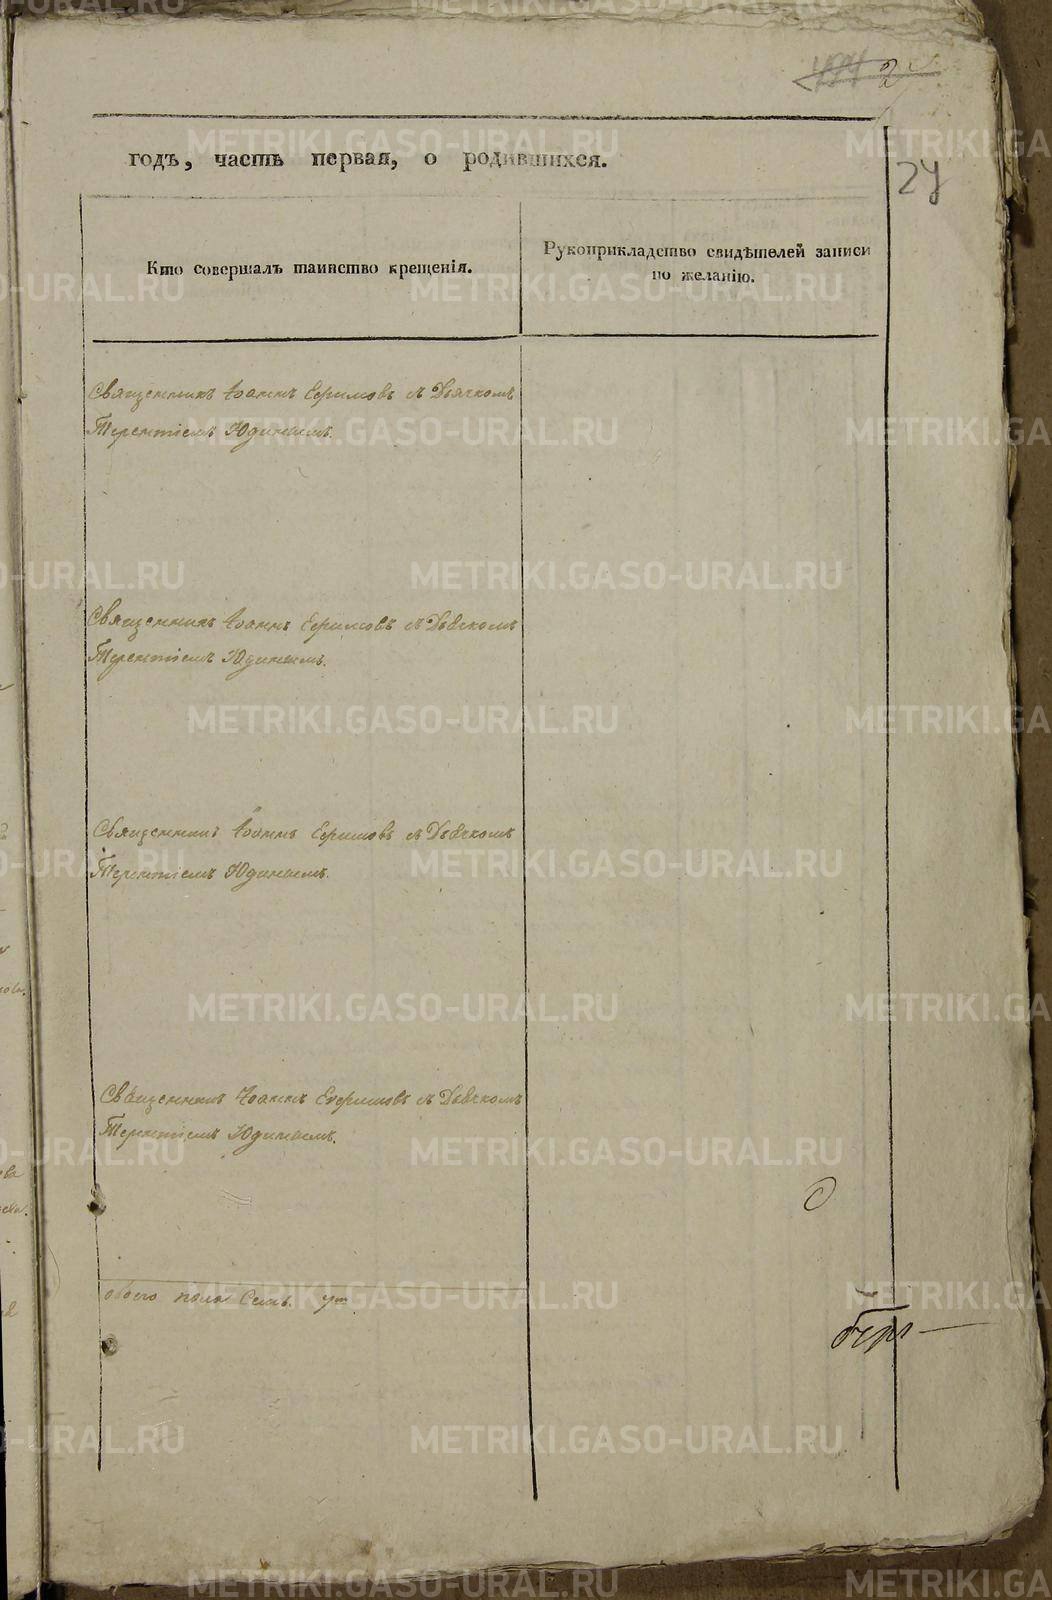 2
24
годъ, часть первая, о родившихся.
Кто совершалъ таинство крещенія.
Рукоприкладство свидѣтелей записи
по желанію.
Священникъ Іоаннъ Ефимовъ съ Дьячкомъ
Терентіемъ Юдинымъ.
Священникъ Іоаннъ Ефимовъ съ Дьячкомъ
Терентіемъ Юдинымъ.
Священникъ Іоаннъ Ефимовъ съ Дьячкомъ
Терентіемъ Юдинымъ.
Священникъ Іоаннъ Ефимовъ съ Дьячкомъ
Терентіемъ Юдинымъ.
обоего пола Семь.
METRIKI.GASO-URAL.RU